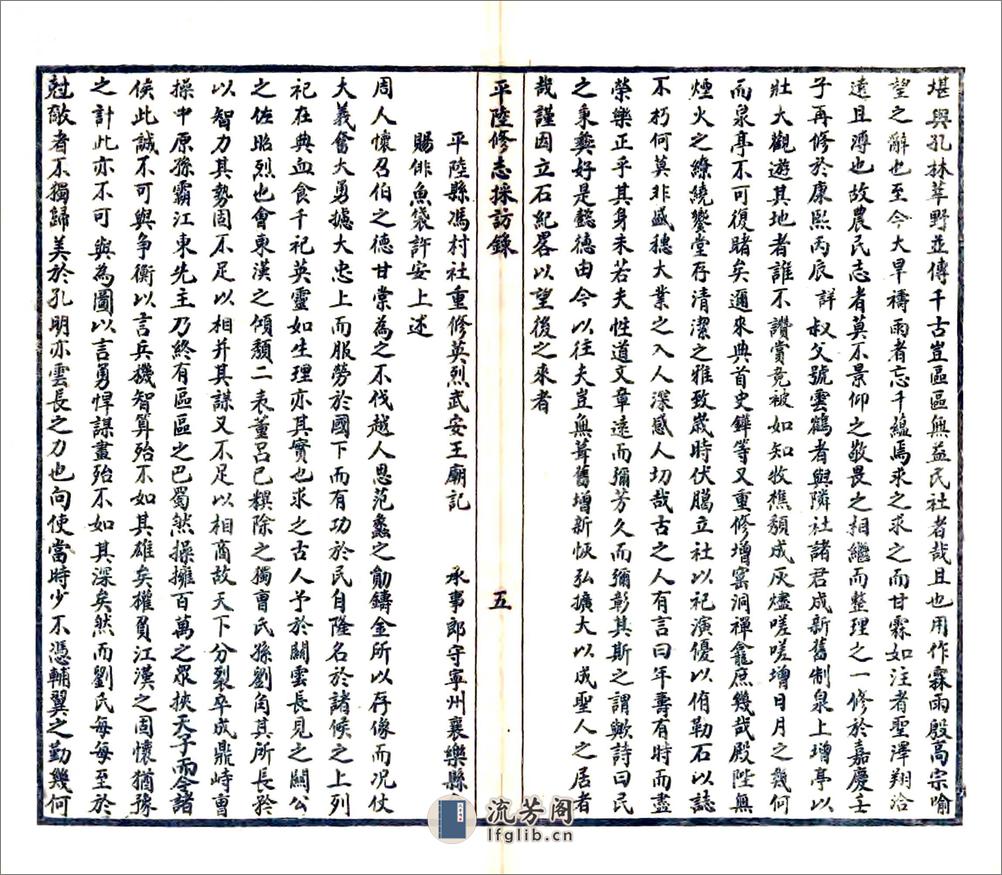 堪與孔林莘野並傳千古豈區區無益民社者哉且也用作霖雨殷高宗喻
望之辭也至今大旱禱雨者忘千蘊焉求之求之而甘霖如注者聖澤翔洽
遠且溥也故農民志者莫不景仰之敬畏之相繼而整理之一修於嘉慶壬
子再修於康熙丙辰詳叔父號雲鶴者與隣社諸君成新舊制泉上增亭以
壯大觀遊其地者誰不讚賞竟被如知牧樵頹成灰燼嗟嗟增日月之幾何
而泉亭不可復睹矣邇來典首史鏵等又重修增窑洞禪龕庶幾哉殿陛無
煙火之繚繞饗堂存清潔之雅致歲時伏臈立社以祀演優以侑勒石以誌
不朽何莫非盛穗大業之入人深感人切哉古之人有言曰年壽有時而盡
榮樂正乎其身未若夫性道文章遠而彌芳久而彌彰其斯之謂歟詩曰民
之秉彝好是懿德由今以往夫豈無葺舊增新恢弘擴大以成聖人之居者
哉謹因立石紀畧以望後之來者
平陸修志採訪錄
五
平陸縣馮村社重修英烈武安王廟記
承事郎守寧州襄樂縣
賜緋魚袋許安上述
周人懷召伯之德甘棠為之不伐越人思范蠡之勛鑄金所以存像而况仗
大義奮大勇攄大忠上而服勞於國下而有功於民自隆名於諸候之上列
祀在典血食千祀英靈如生理亦其實也求之古人予於關雲長見之關公
之佐昭烈也會東漢之傾頹二袁董呂已糞除之獨曹氏孫劉角其所長矜
以智力其勢固不足以相并其謀又不足以相商故天下分裂卒成鼎峙曹
操中原孫霸江東先主乃終有區區之巴蜀然操擁百萬之眾挾天子而令諸
侯此誠不可與争衡以言兵機智算殆不如其雄矣權負江漢之固懷猶豫
之計此亦不可與為圖以言勇悍謀畫殆不如其深矣然而劉氏每每至於
尅敵者不獨歸美於孔明亦雲長之力也向使當時少不憑輔翼之勤幾何
流芳阁
lfglib.cn